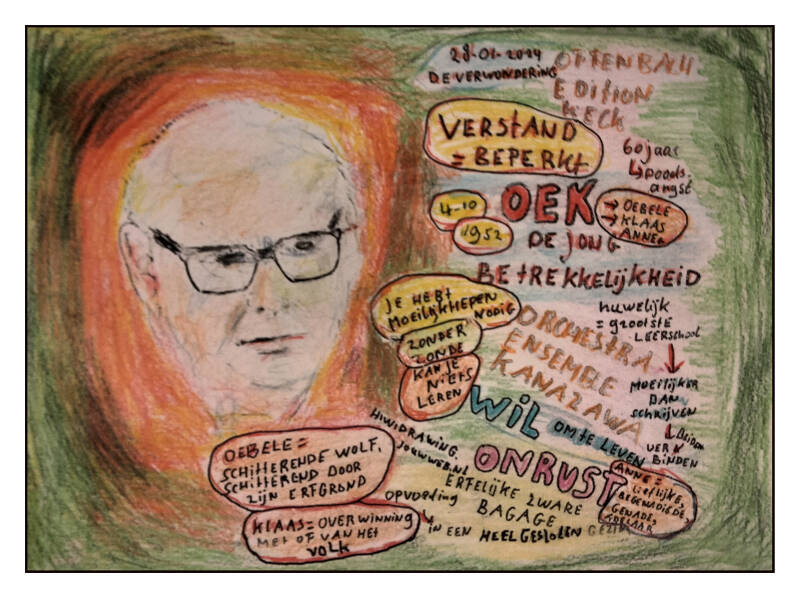 28-01-2024
DE VERWONDERING
OFFENBACH.
EDITION
KECK
VERSTAND
= BEPERKT
60 jaar
↳ doods.
angst
4-10
1952
OEK
DE JONG
→ OEBELE
→ KLAAS
ANNE.
BETREKKELIJKHEID
JE HEBT
MOEILIJKHEDEN
NODIG
ZONDER
ZONDE
KAN JE
NIETS
LEREN
huwelijk
= grootste
LEERSCHOOL
ORCHESTRA
ENSEMBLE
KANAZAWA
MOEILIJKER
DAN
SCHRIJVEN
↓ BEIDEN
VER
BINDEN
WIL OM TE LEVEN
HIWIDRAWING.
JOUWWEB.NL
ONRUST
ANNE =
liEFLIJKE,
BEGENADIGDE,
GENADE,
ADELAAR
OEBELE =
SCHITTERENDE WOLF.
SCHITTEREND DOOR
ZIJN ERFGROND
ERFELIJKE ZWARE
BAGAGE
opvoeding
IN EEN HEEL GESLOTEN GEZIN
KLAAS = OVERWINNING
MET OF VAN HET
VOLK